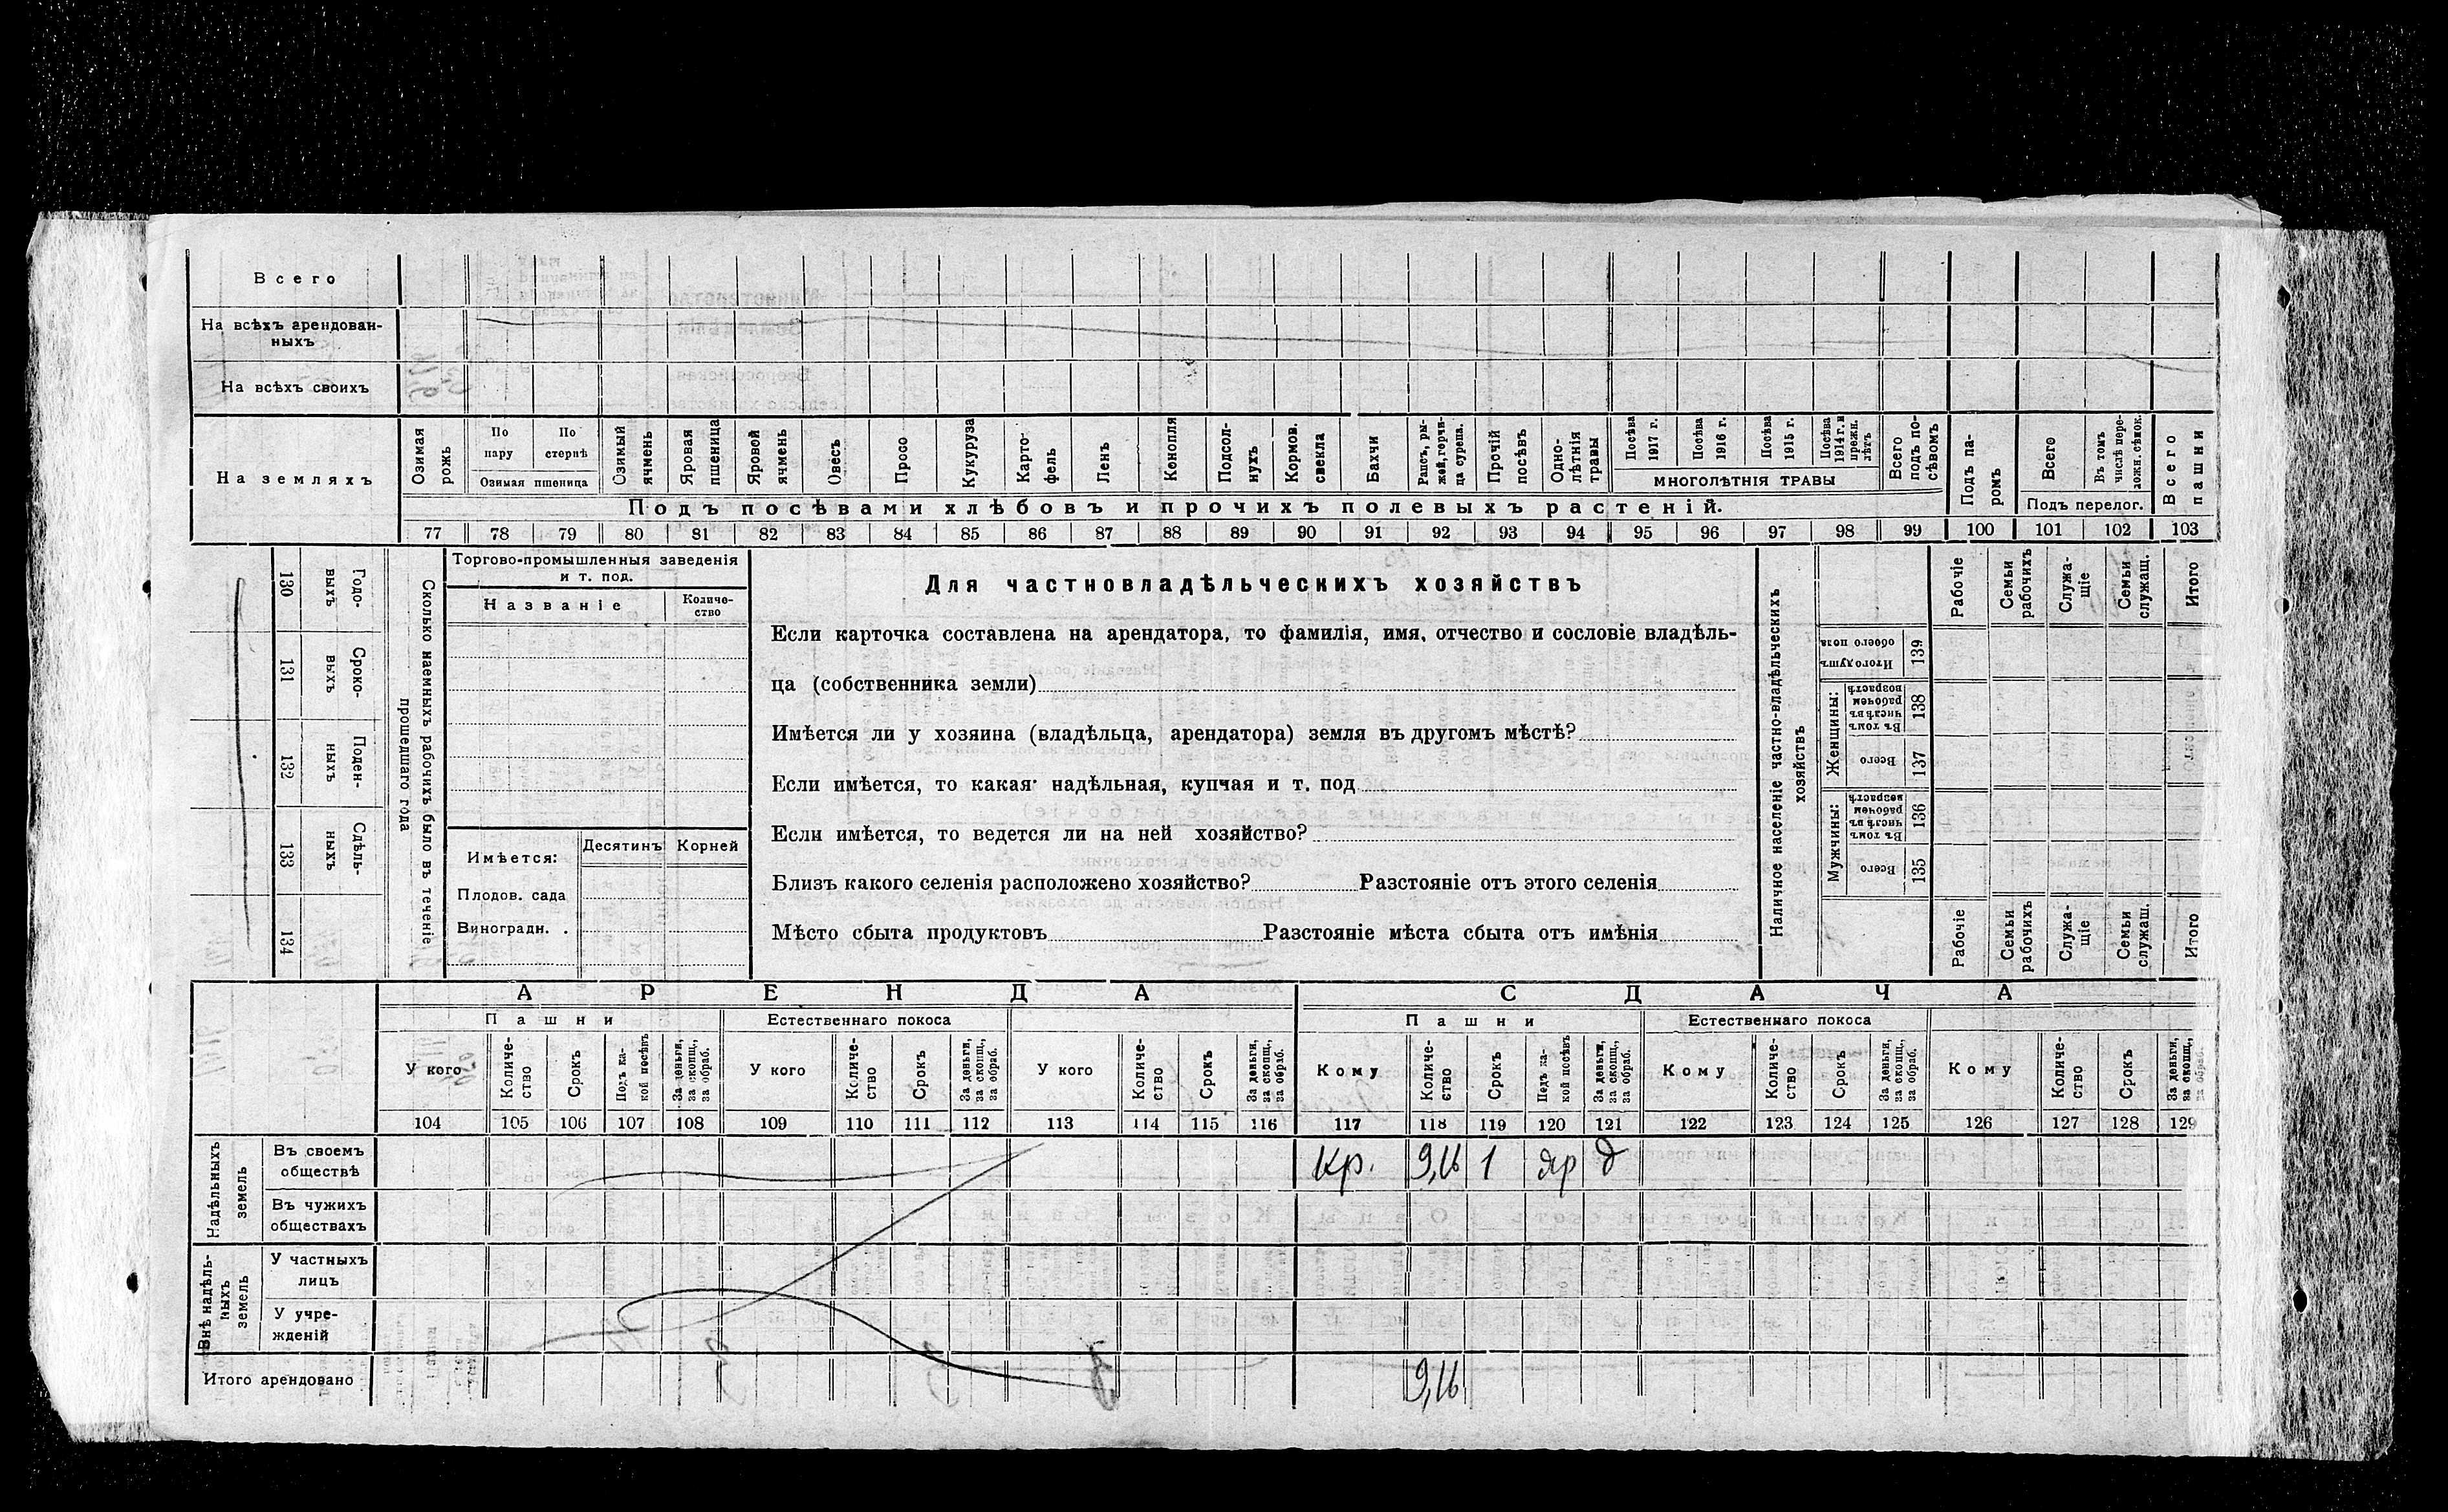 Всего
На всѣхъ арендован-
ныхъ
На всѣхъ своихъ
На земляхъ
Озимая рожь
По пару
По стернѣ
Озимая пшеница
Озимый ячмень
Яровая пшеница
Яровой ячмень
Овесъ
Просо
Кукуруза
Карто-
фель
Ленъ
Конопля
Подсол-
нухъ
Кормов. свекла
Бахчи
Рапсъ, ры-
жей, горчи-
ца сурепа.
Прочій посѣвъ
Одно-
лѣтнія травы
Посѣва 1917 г.
Посѣва 1916 г.
Посѣва 1915 г.
Посѣва 1914 г. и прежн. лѣтъ
МНОГОЛѢТНІЯ ТРАВЫ
Всего подъ по-
сѣвомъ
Подъ па-
ромъ
Всего
Въ томъ числѣ пере-
ложн. сѣнок.
Подъ перелог.
Всего пашни
Подъ посѣвами хлѣбовъ и прочихъ полевыхъ растеній.
77 78 79 80 81 82 83 84 85 86 87 88 89 90 91 92 93 94 95 96 97 98 99 100 101 102 103
130 Годо-
выхъ
131 Сроко-
выхъ
132 Поден-
ныхъ
133 Сдѣль-
ныхъ
134
Сколько наемныхъ рабочихъ было въ теченіе
прошедшаго года
Торгово-промышленныя заведенія
и т. под.
Названіе
Количе-
ство
Имѣется:
Десятинъ
Корней
Плодов. сада
Виноградн. .
Для частновладѣльческихъ хозяйствъ
Если карточка составлена на арендатора, то фамилія, имя, отчество и сословіе владѣль-
ца (собственника земли)
Имѣется ли у хозяина (владѣльца, арендатора) земля въ другомъ мѣстѣ?
Если имѣется, то какая· надѣльная, купчая и т. под
Если имѣется, то ведется ли на ней хозяйство?
Близъ какого селенія расположено хозяйство? Разстояніе отъ этого селенія
Мѣсто сбыта продуктовъ Разстояніе мѣста сбыта отъ имѣнія
Наличное населеніе частно-владѣльческихъ
хозяйствъ
Итого душъ
обоего пола
139
Женщины:
Въ томъ числѣ въ рабочемъ возрастѣ
138
Всего
137
Мужчины:
Въ томъ числѣ въ рабочем возрастѣ
136
Всего
135
Рабочіе
Семьи рабочихъ
Служа-
щіе
Семьи служащ.
Итого
Рабочіе
Семьи рабочихъ
Служа-
щіе
Семьи служащ.
Итого
АРЕНДА
СДАЧА
Пашни
Естественнаго покоса
Пашни
Естественнаго покоса
У кого
Количе-
ство
Срокъ
Подъ ка-
кой посѣвъ
За деньги, за скопщ., за обраб.
У кого
Количе-
ство
Срокъ
За деньги, за скопщ., за обраб.
У кого
Количе-
ство
Срокъ
За деньги, за скопщ., за обраб.
Кому
Количе-
ство
Срокъ
Подъ ка-
кой посѣвъ
За деньги, за скопщ., за обраб.
Кому
Количе-
ство
Срокъ
За деньги, за скопщ., за обраб.
Кому
Количе-
ство
Срокъ
За деньги, за скопщ., за обраб.
104 105 106 107 108 109 110 111 112 113 114 115 116 117 118 119 120 121 122 123 124 125 126 127 128 129
Надѣльныхъ
земель
Въ своемъ
обществѣ
кр. 9,16 1 яр д
Въ чужихъ
обществахъ
Внѣ надѣль-
ныхъ
земель
У частныхъ
лицъ
У учре-
жденій
Итого арендовано
9,16